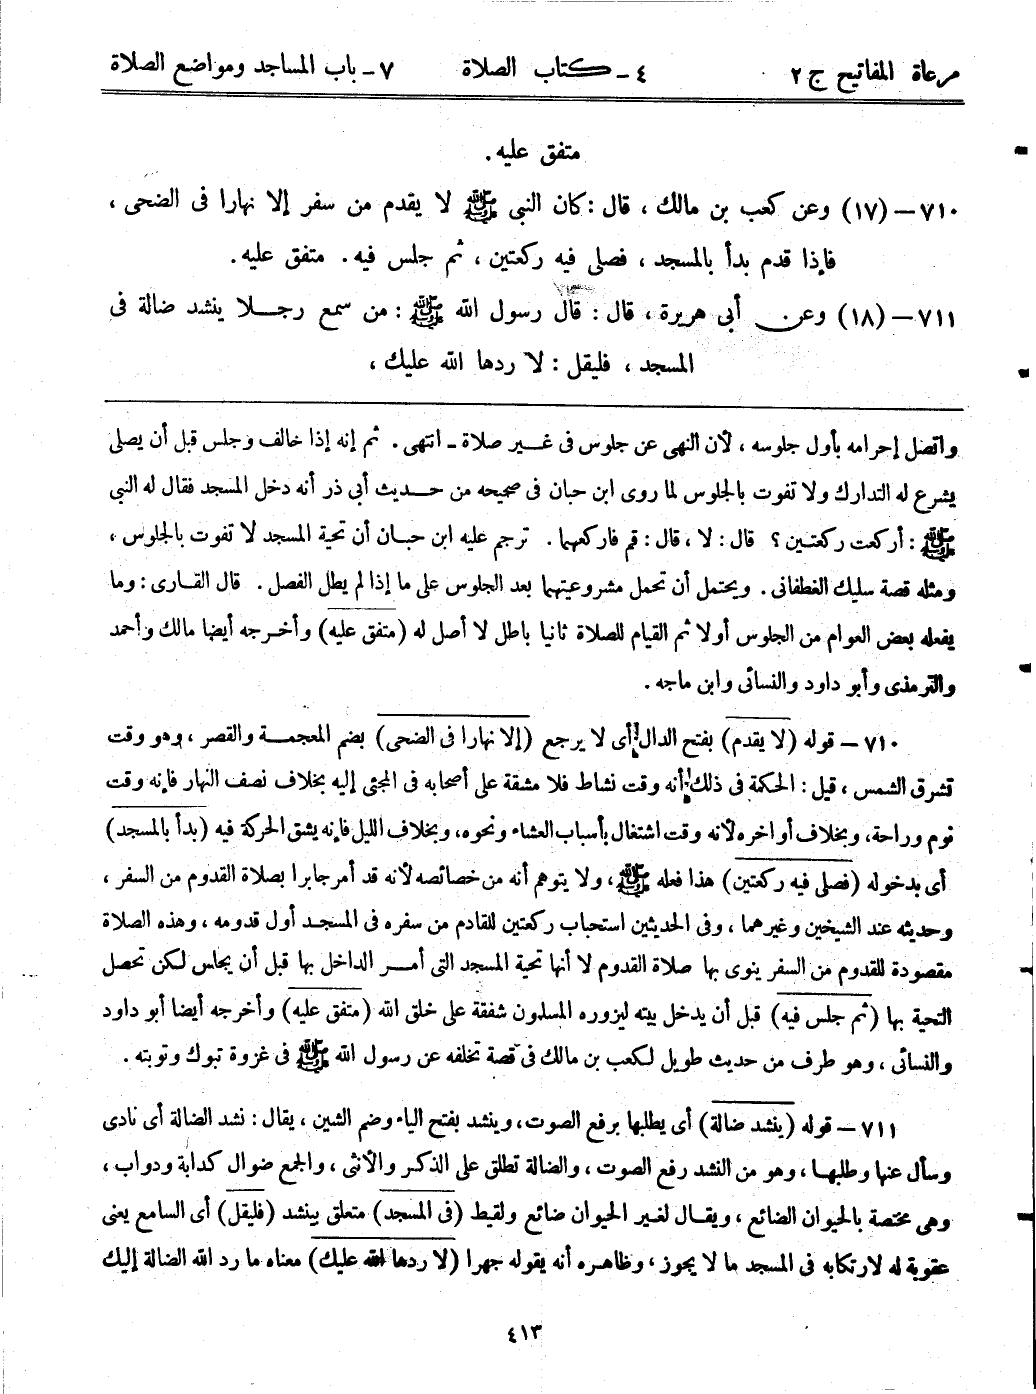 مرعاة المفاتيح ج ٢ ٤ - كتاب الصلاة ٧ - باب المساجد ومواضع الصلاة
متفق عليه.
٧١٠ - (١٧) وعن كعب بن مالك، قال: كان النبي ﷺ لا يقدم من سفر إلا نهارا فى الضحى،
فإذا قدم بدأ بالمسجد، فصلى فيه ركعتين، ثم جلس فيه. متفق عليه.
٧١١ - (١٨) وعن أبى هريرة، قال: قال رسول الله ﷺ: من سمع رجلا ينشد ضالة فى
المسجد، فليقل: لا ردها الله عليك،
واتصل إحرامه بأول جلوسه، لأن النهى عن جلوس فى غير صلاة - انتهى. ثم إنه إذا خالف وجلس قبل أن يصلى
يشرع له التدارك ولا تفوت بالجلوس لما روى ابن حبان فى صحيحه من حديث أبي ذر أنه دخل المسجد فقال له النبي
ﷺ: أركعت ركعتين؟ قال: لا، قال: قم فاركعهما. ترجم عليه ابن حبان أن تحية المسجد لا تفوت بالجلوس،
ومثله قصة سليك الغطفانى. ويحتمل أن تحمل مشروعيتهما بعد الجلوس على ما إذا لم يطل الفصل. قال القارى: وما
يفعله بعض العوام من الجلوس أولا ثم القيام للصلاة ثانيا باطل لا أصل له (متفق عليه) وأخرجه أيضا مالك وأحمد
والترمذى وأبو داود والنسائى وابن ماجه.
٧١٠ - قوله (لا يقدم) بفتح الدال أى لا يرجع (إلا نهارا فى الضحى) بضم المعجمة والقصر، وهو وقت
تشرق الشمس، قيل: الحكمة فى ذلك أنه وقت نشاط فلا مشقة على أصحابه فى المجئى إليه بخلاف نصف النهار فإنه وقت
نوم وراحة، وبخلاف أواخره لأنه وقت اشتغال بأسباب العشاء ونحوه، وبخلاف الليل فإنه يشق الحركة فيه (بدأ بالمسجد)
أى بدخوله (فصلى فيه ركعتين) هذا فعله ﷺ، ولا يتوهم أنه من خصائصه لأنه قد أمر جابرا بصلاة القدوم من السفر،
وحديثه عند الشيخين وغيرهما، وفى الحديثين استحباب ركعتين للقادم من سفره فى المسجد أول قدومه، وهذه الصلاة
مقصودة للقدوم من السفر ينوى بها صلاة القدوم لا أنها تحية المسجد التى أمر الداخل بها قبل أن يجلس لكن تحصل
التحية بها (ثم جلس فيه) قبل أن يدخل بيته ليزوره المسلمون شفقة على خلق الله (متفق عليه) وأخرجه أيضا أبو داود
والنسائى، وهو طرف من حديث طويل لكعب بن مالك فى قصة تخلفه عن رسول الله ﷺ فى غزوة تبوك وتوبته.
٧١١ - قوله (ينشد ضالة) أى يطلبها برفع الصوت، وينشد بفتح الياء وضم الشين، يقال: نشد الضالة أى نادى
وسأل عنها وطلبها، وهو من النشد رفع الصوت، والضالة تطلق على الذكر والأنثى، والجمع ضوال كدابة ودواب،
وهى مختصة بالحيوان الضائع، ويقال لغير الحيوان ضائع ولقيط (فى المسجد) متعلق بينشد (فليقل) أى السامع يعنى
عقوبة له لارتكابه فى المسجد ما لا يجوز، وظاهره أنه يقوله جهرا (لا ردها الله عليك) معناه ما رد الله الضالة إليك
٤١٣